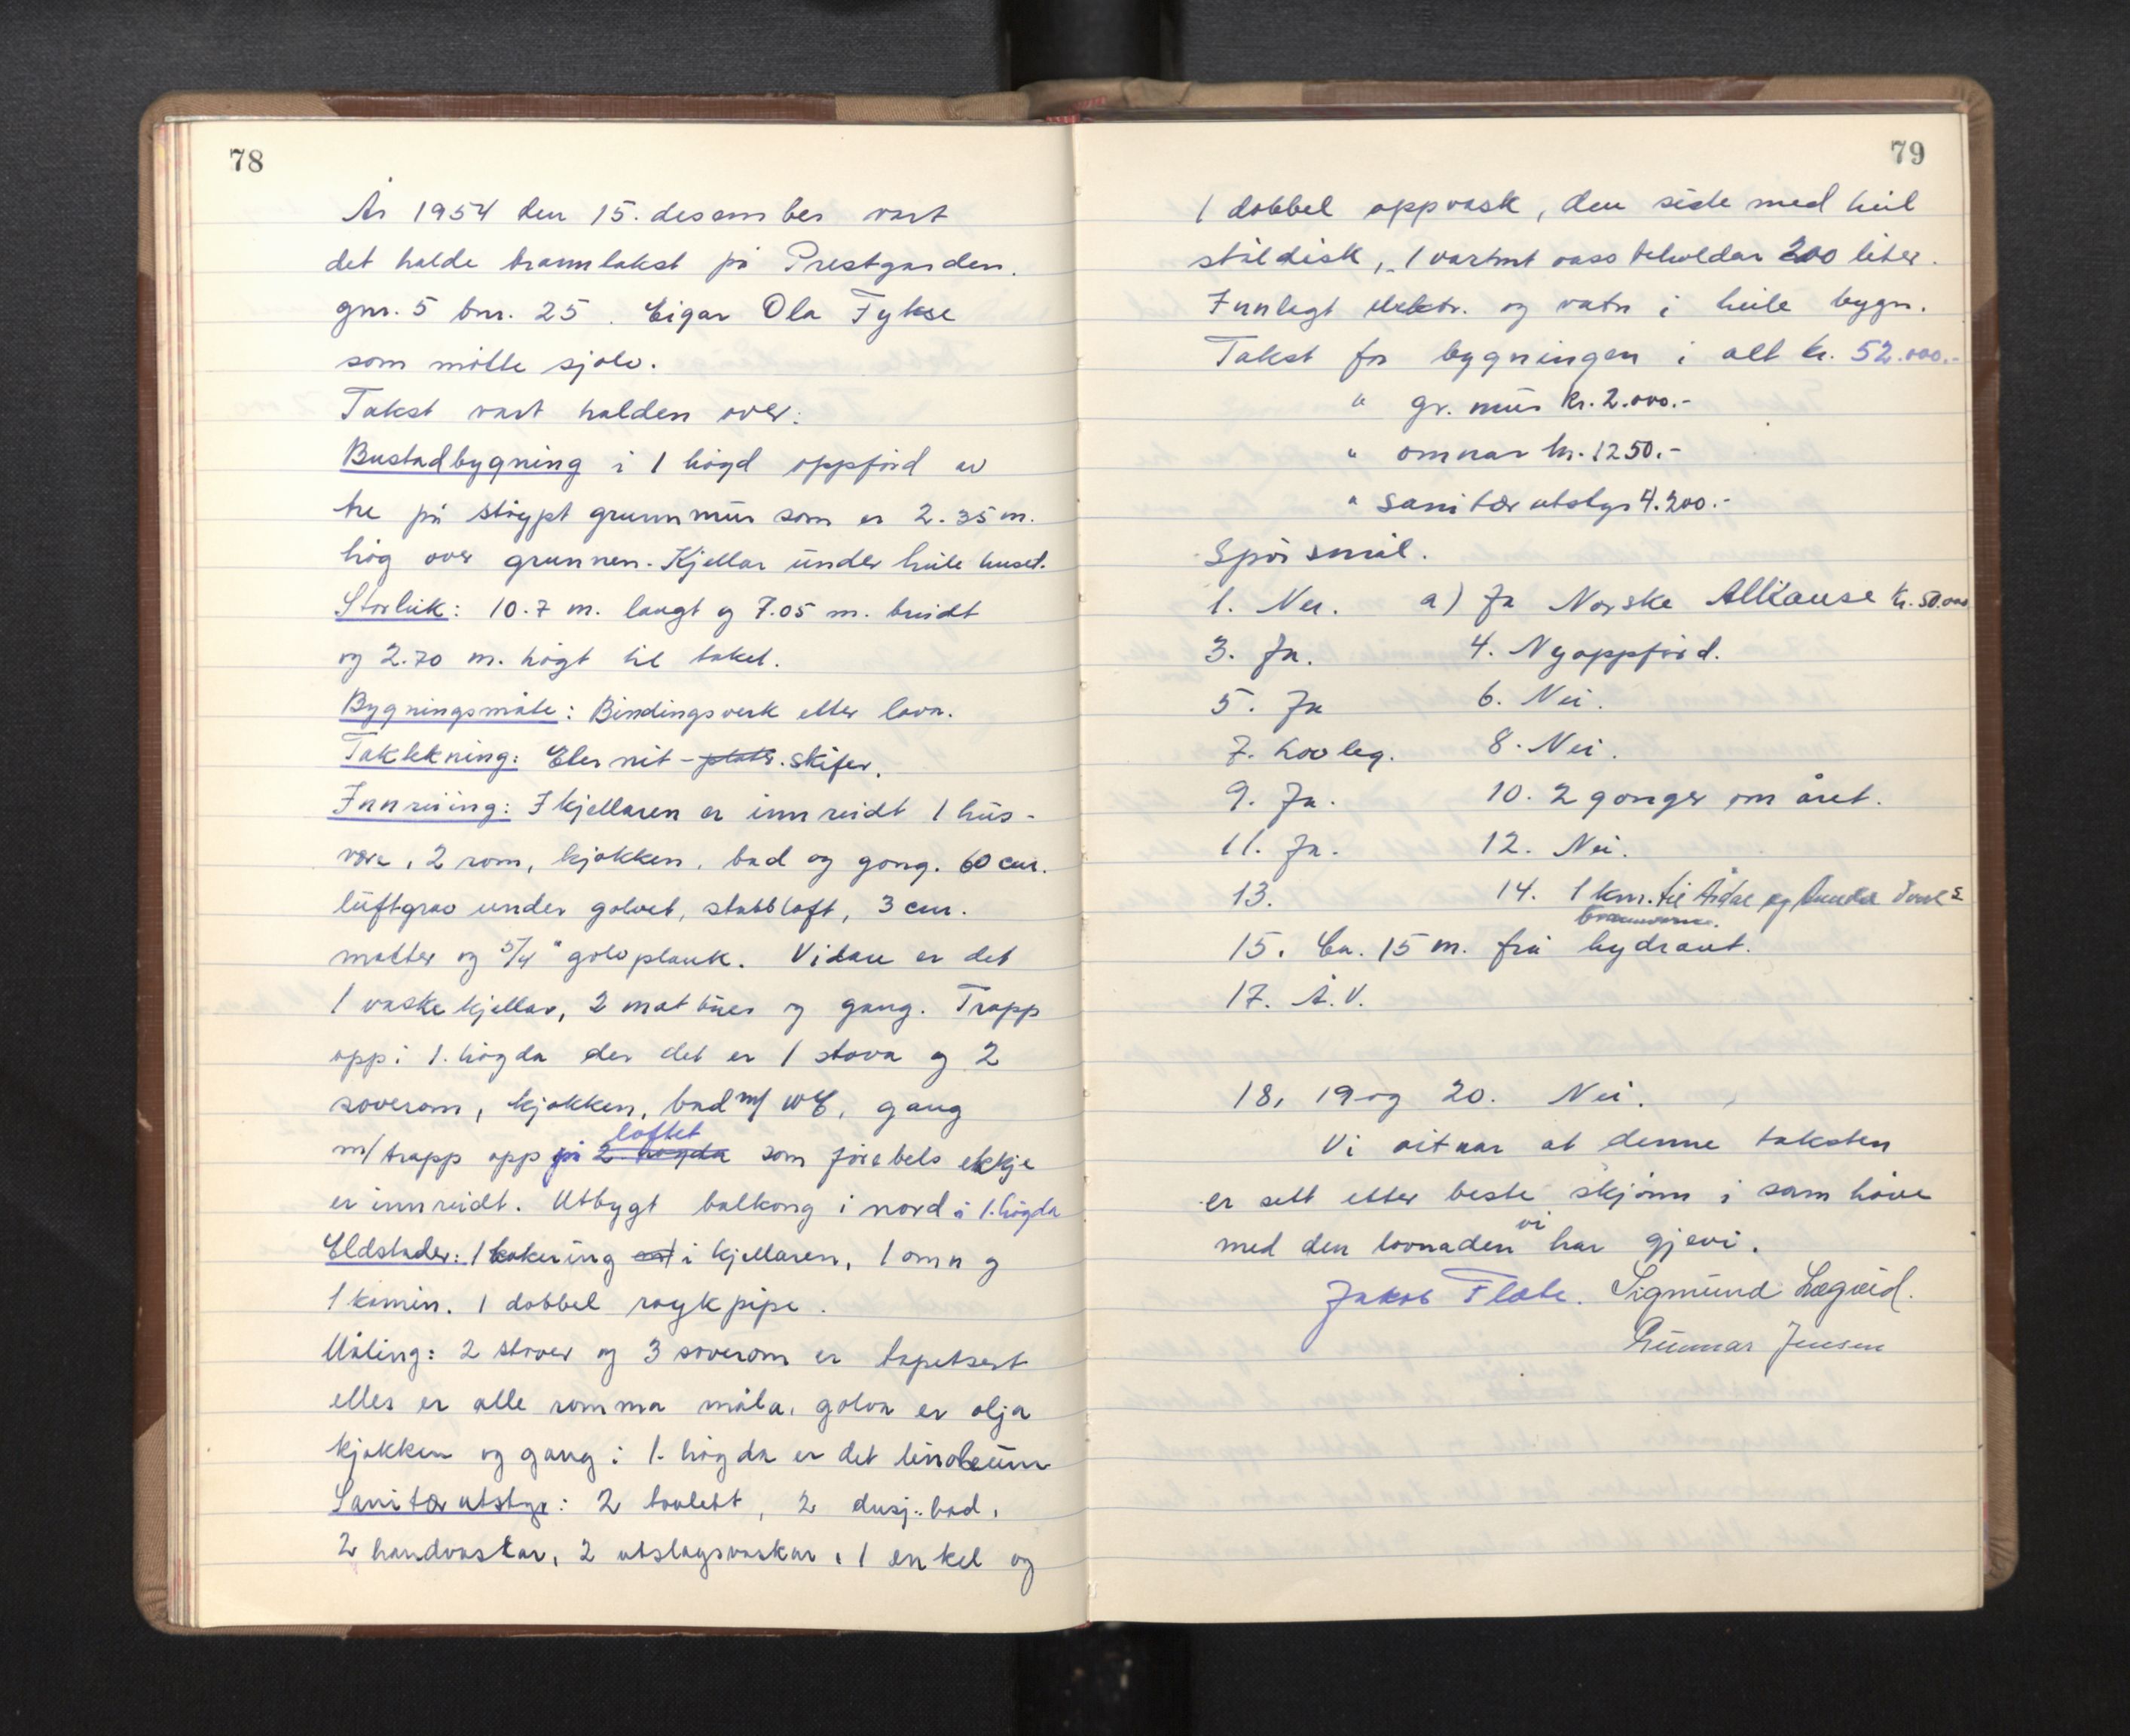 78
År 1954 den 15. desember vart
det halde branntakst på Prestgarden.
gnr. 5 bnr. 25. Eigar Ola Fykse
som møtte sjølv.
Takst vart halden over:
Bustadbygning i 1 høgd oppførd av
tre på støypt grunnmur som er 2.35 m.
høg over grunnen. Kjellar under heile huset.
Storleik: 10.7 m. langt og 7.05 m. breidt
og 2.70 m. høgt til taket.
Bygningsmåte: Bindingsverk etter lova.
Taktekning: Eternit - plater. skifer.
Innreiing: I kjellaren er innreidt 1 hus-
være, 2 rom, kjøkken, bad og gong. 60 cm.
luftgrav under golvet, stubbloft, 3 cm.
matter og 5/4" golvplank. Vidare er det
1 vaskekjellar, 2 matbuer og gang. Trapp
opp i 1. høgda der det er 1 stova og 2
soverom, kjøkken, bad m/ WC, gang
m/trapp opp på 2. høgda loftet som førebels ekkje
er innreidt. Utbygt balkong i nord i 1. høgda
Eldstader: 1 kokering i kjellaren, 1 omn og
1 kamin. 1 dobbel røykpipe.
Måling: 2 stover og 3 soverom er tapetsert
elles er alle romma måla, golva er olja
kjøkken og gang i 1. høgda er det linoleum
Sanitærutstyr: 2 toalett, 2 dusj.-bad,
2 handvaskar, 2 utslagsvaskar, 1 enkel og
79
1 dobbel oppvask, den siste med heil
ståldisk, 1 varmt vass beholdar 200 liter.
Innlagt elektr. og vatn i heile bygn.
Takst for bygningen i alt kr. 52.000.-
" gr. mur kr. 2.000.-
" omnar kr. 1250.-
" sanitær utstyr 4.200.-
Spørsmål.
1. Nei. a) Ja Norske Allianse kr. 50.000
3. Ja. 4. Nyoppførd.
5. Ja 6. Nei.
7. Lovleg. 8. Nei.
9. Ja. 10. 2 gonger om året.
11. Ja. 12. Nei.
13. 14. 1 km. til Årdal og
brannvern.
15. Ca. 15 m. frå hydrant.
17. Å.V.
18, 19 og 20. Nei.
Vi vitnar at denne taksten
er sett etter beste skjønn i samhøve
med den lovnaden vi har gjevi.
Jakob Flate. Sigmund Lægreid.
Gunnar Jensen